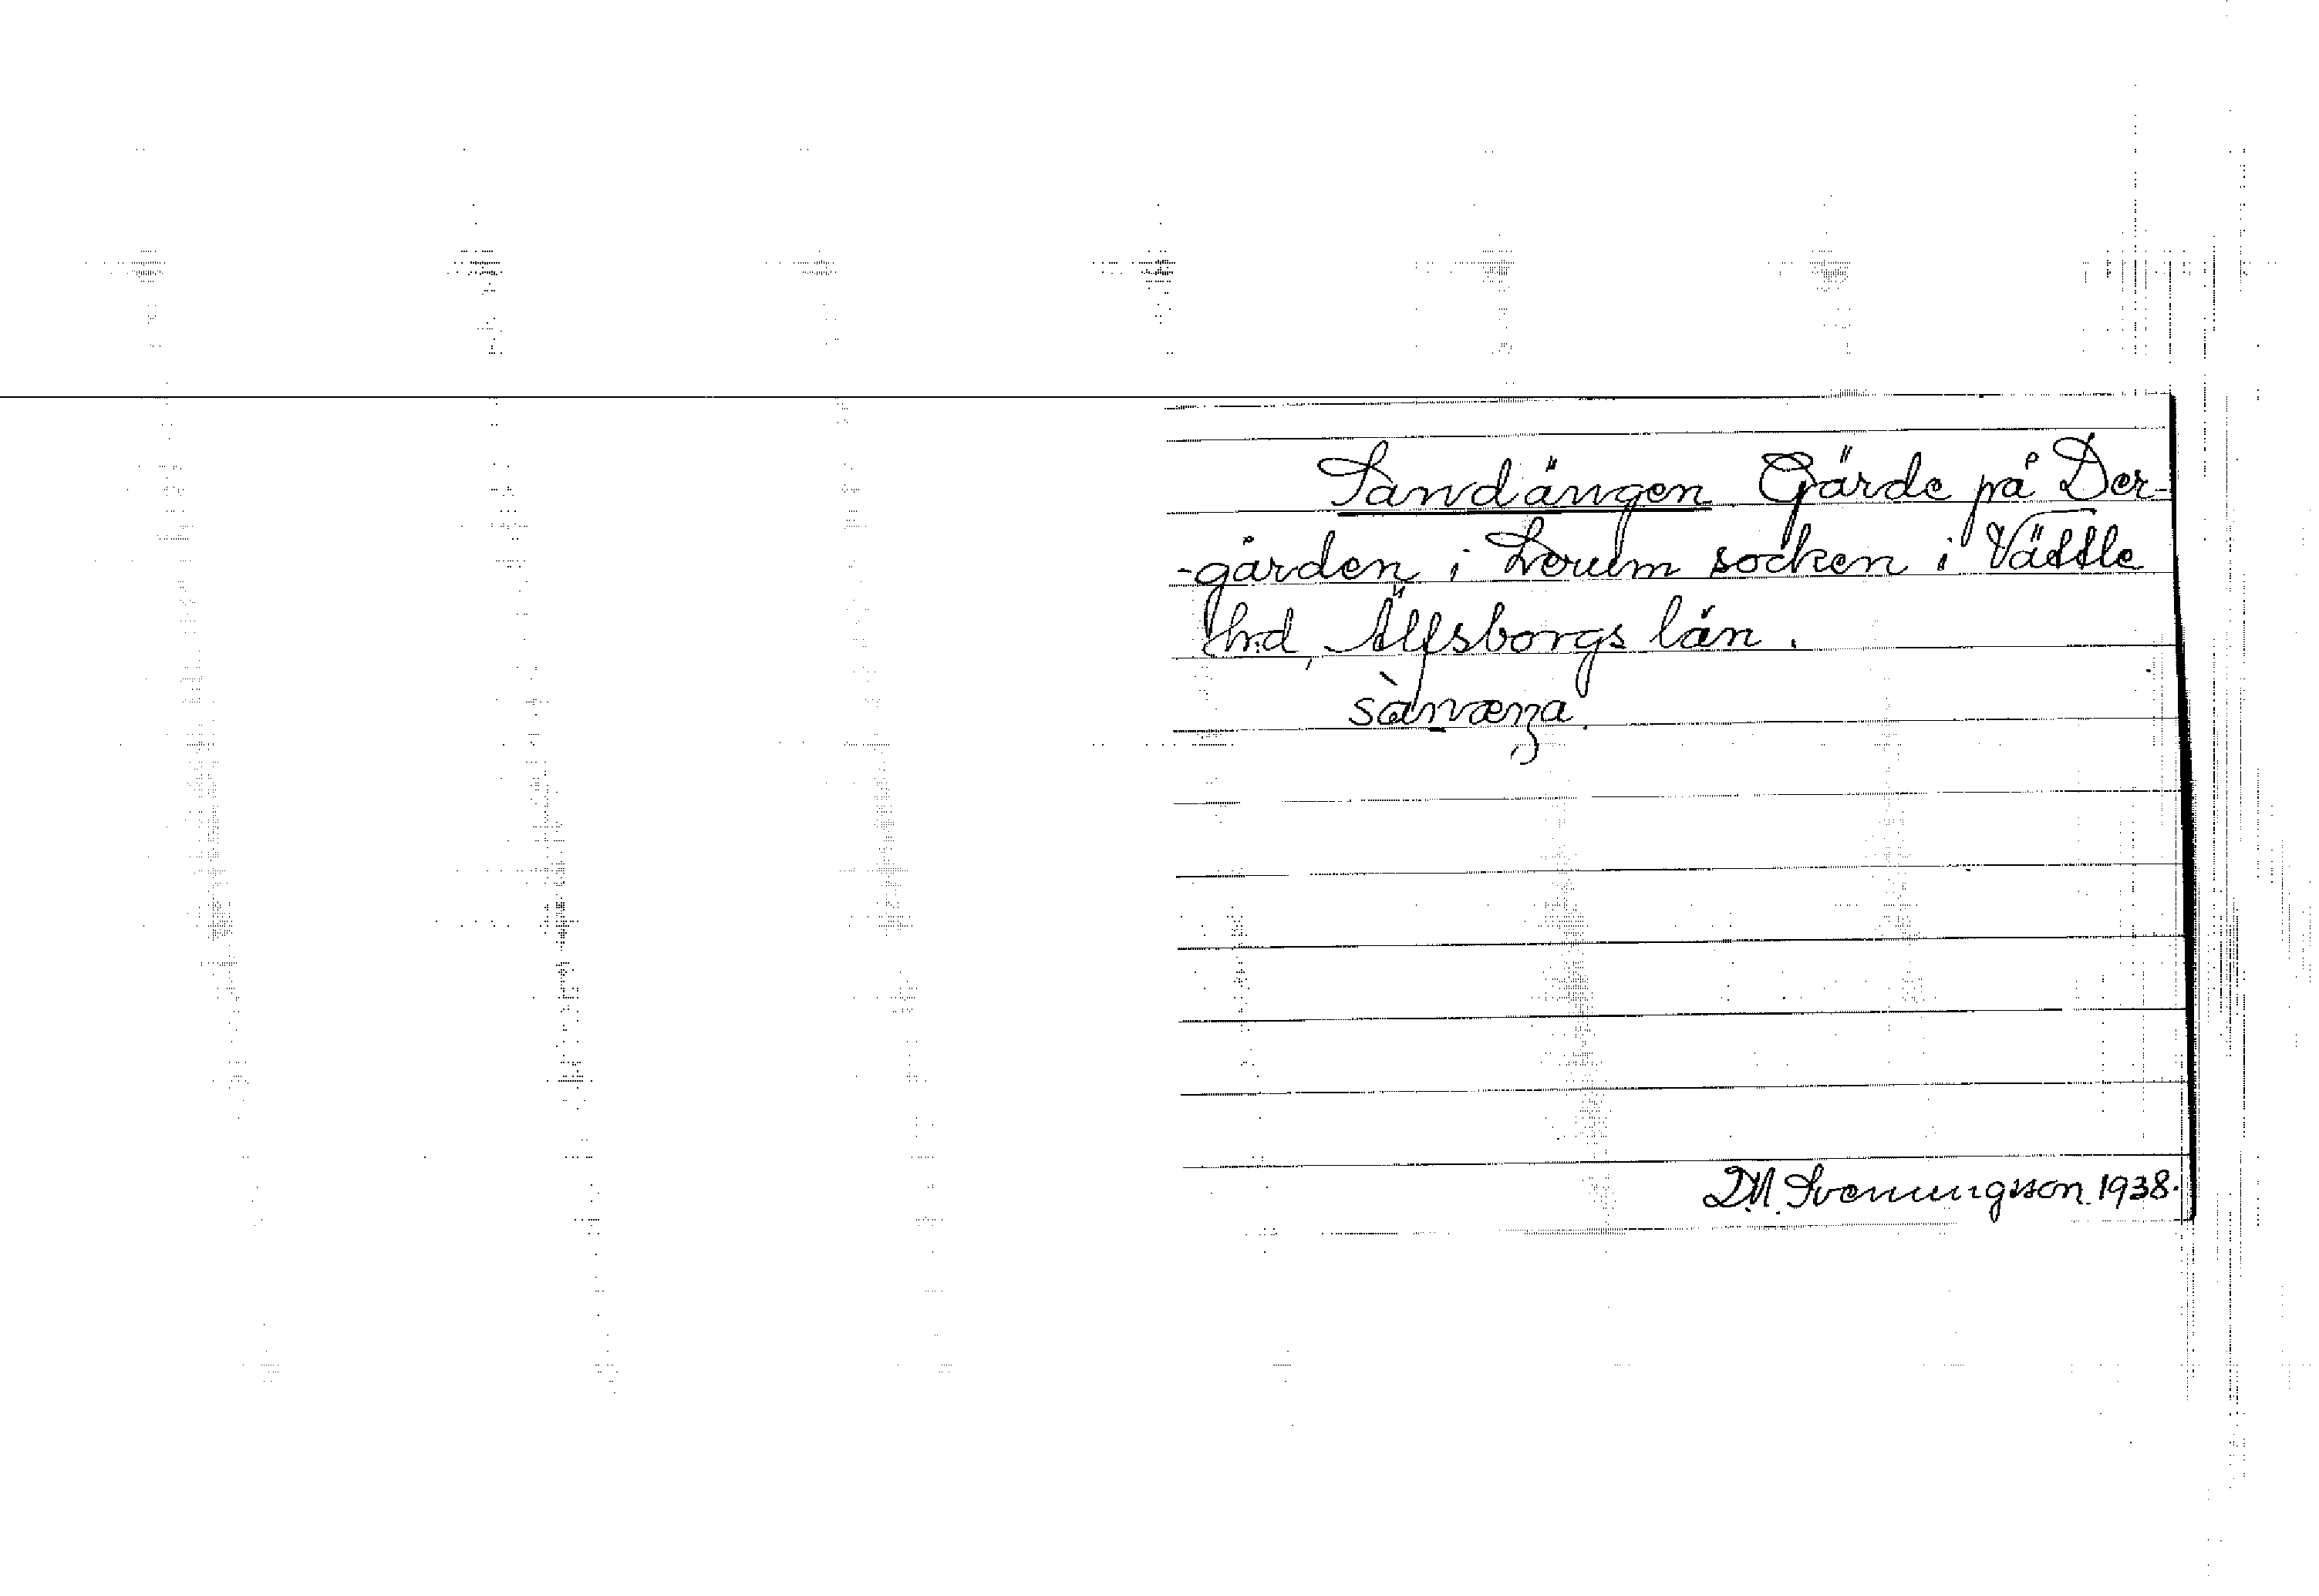 Sandängen Gärde på Der-
-gården i Lerum socken i Vättle
hd, Älfsborgs län.
sànvæŋa.
D.M. Svenningsson 1938.